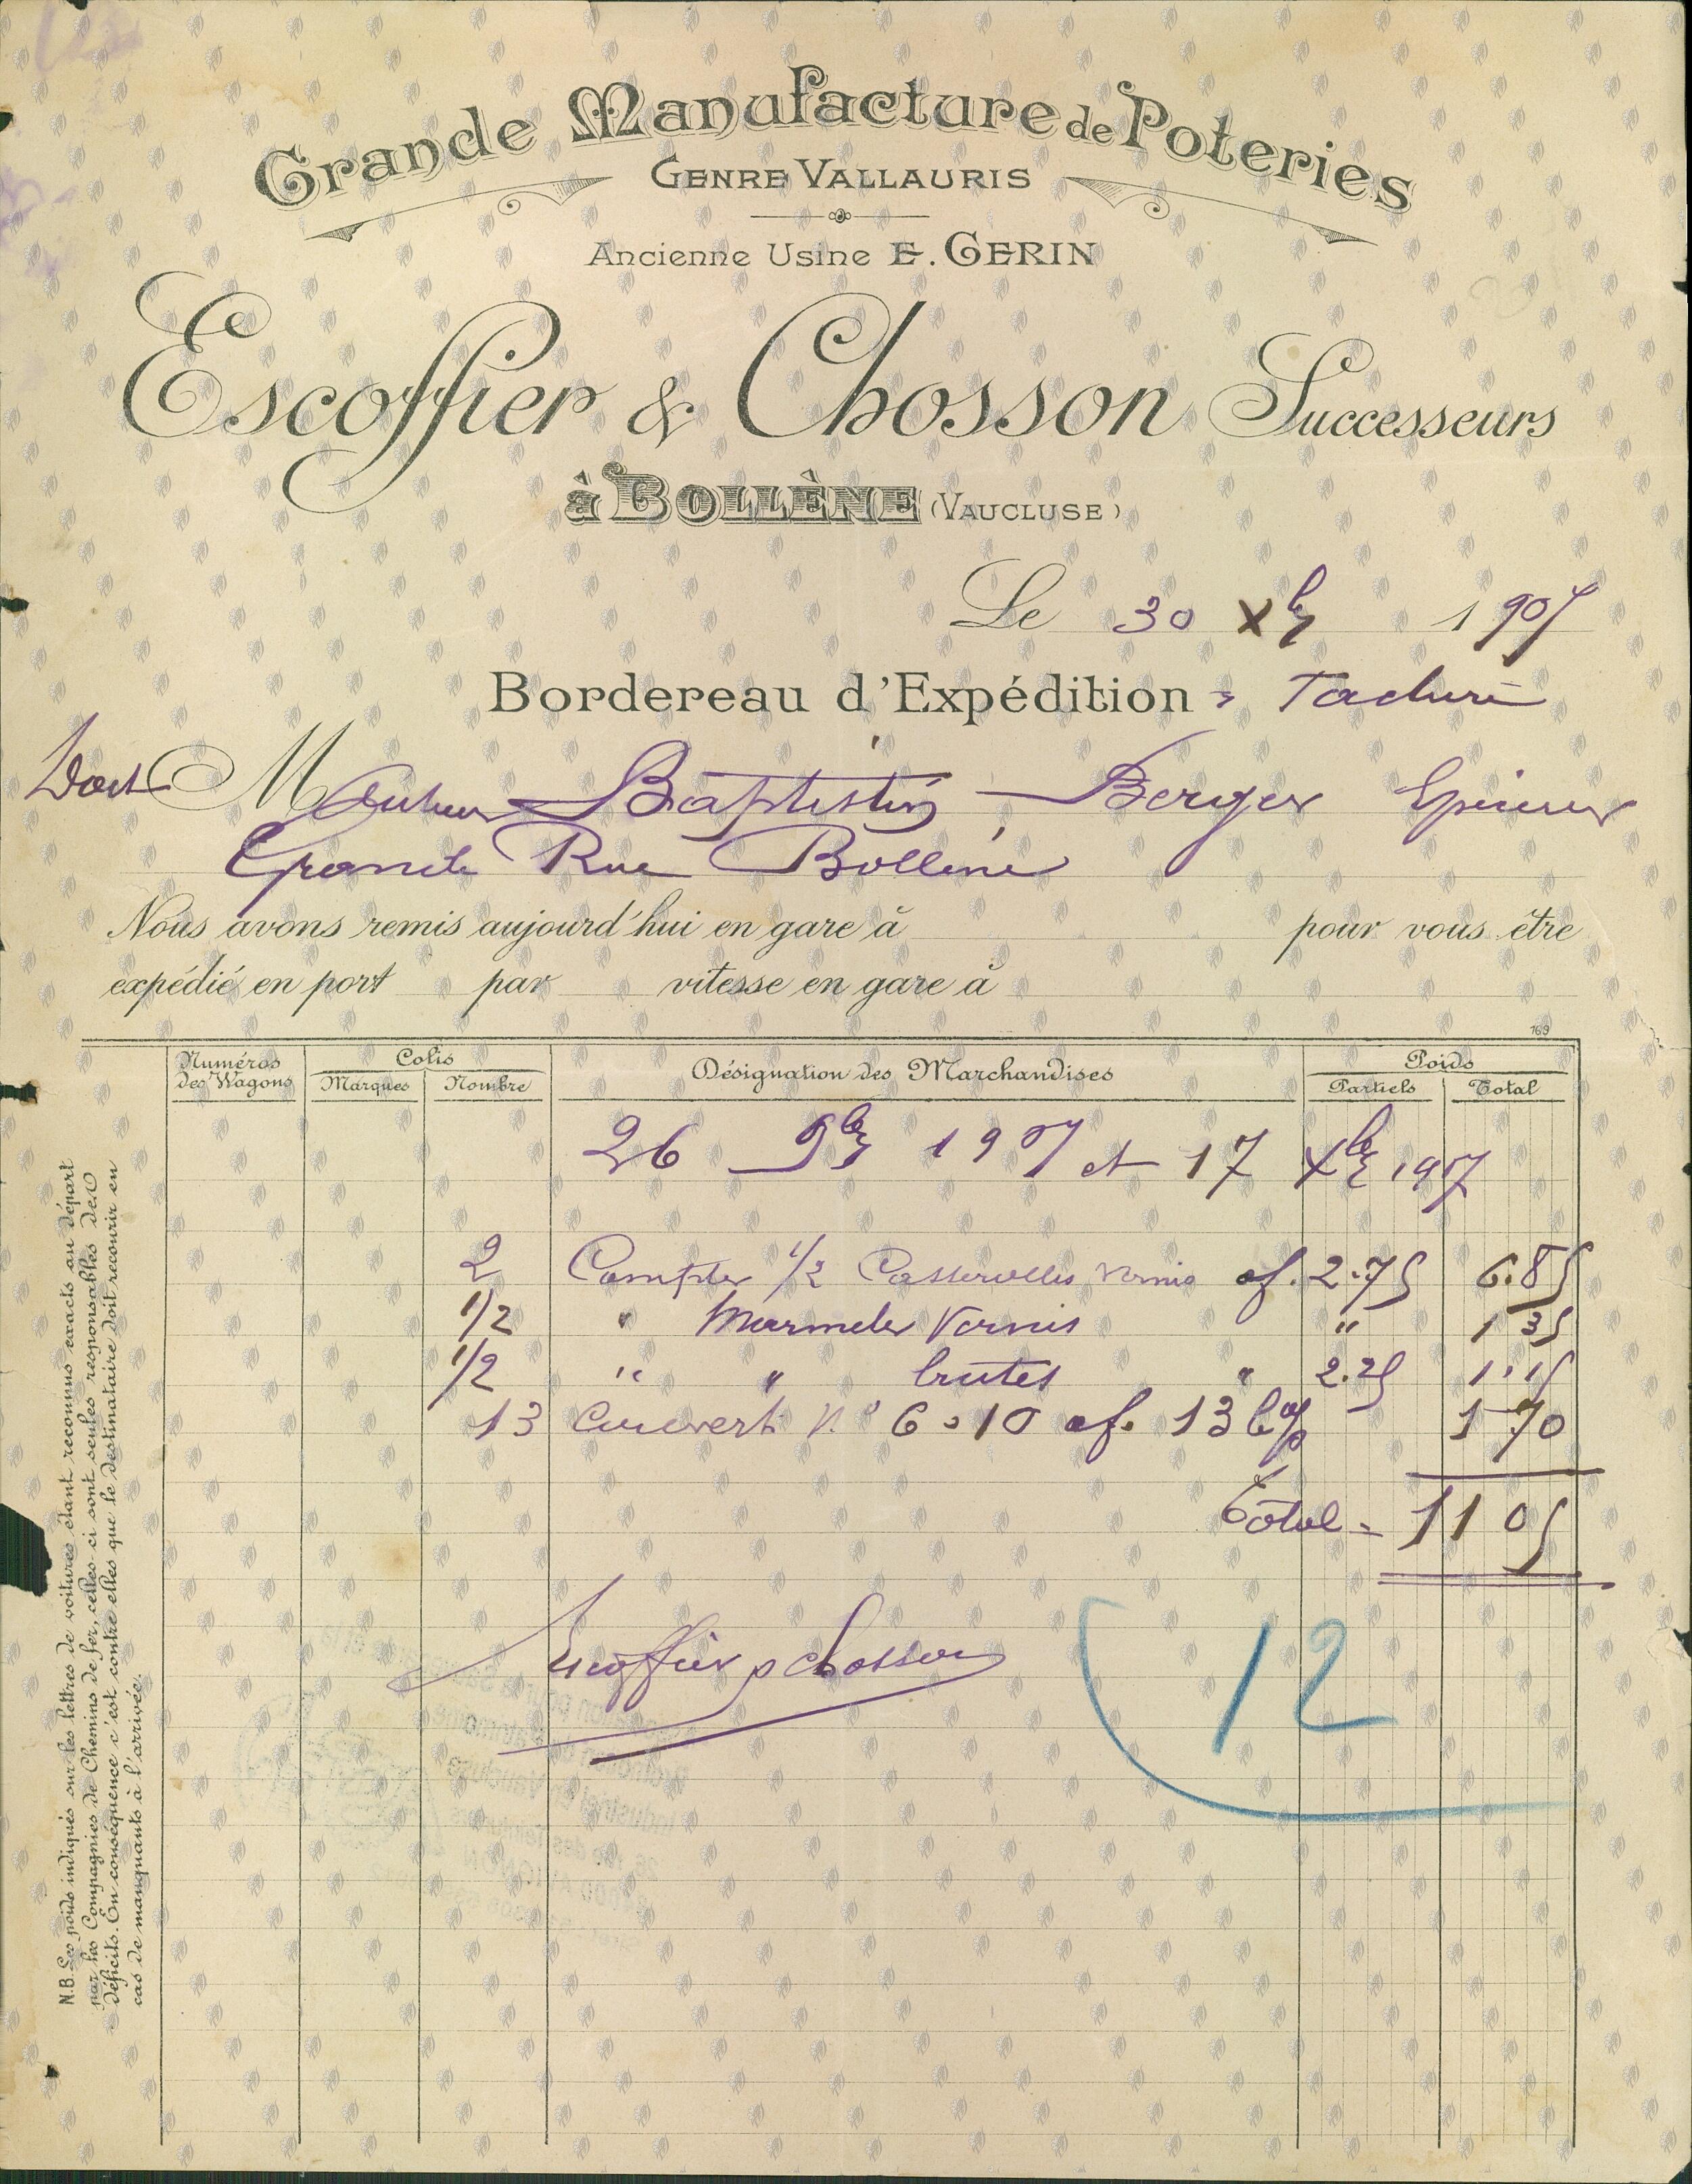 Grande Manufacture de Poteries
GENRE VALLAURIS
Ancienne Usine E. GERIN
Escoffier & Chosson Successeurs
à BOLLÈNE (VAUCLUSE)
Le 30 Xbre 1907
Bordereau d'Expédition = Facture
Doit M Baptistin Berger Epicier
Grande Rue Bollène
Nous avons remis aujourd'hui en gare à pour vous être
expédié en port par vitesse en gare à
169
Numéros des Wagons Colis Marques Nombre Désignation des Marchandises Poids Partiels Total
26 9bre 1907 et 17 Xbre 1907
2 Comptes 1/2 Casserolles vernis af. 2.75 6.85
1/2 " Marmites Vernis " 1 35
1/2 " " brutes " 2.25 1.15
13 Couvert N° 6 à 10 af. 13 le % 1 70
Total = 11 05
Escoffier & Chosson
12
N.B. Les poids indiqués sur les lettres de voitures étant reconnus exacts au départ
par les Compagnies de Chemins de fer, celles-ci sont seules responsables des
déficits. En conséquence c'est contre elles que le destinataire doit recourir en
cas de manquants à l'arrivée.